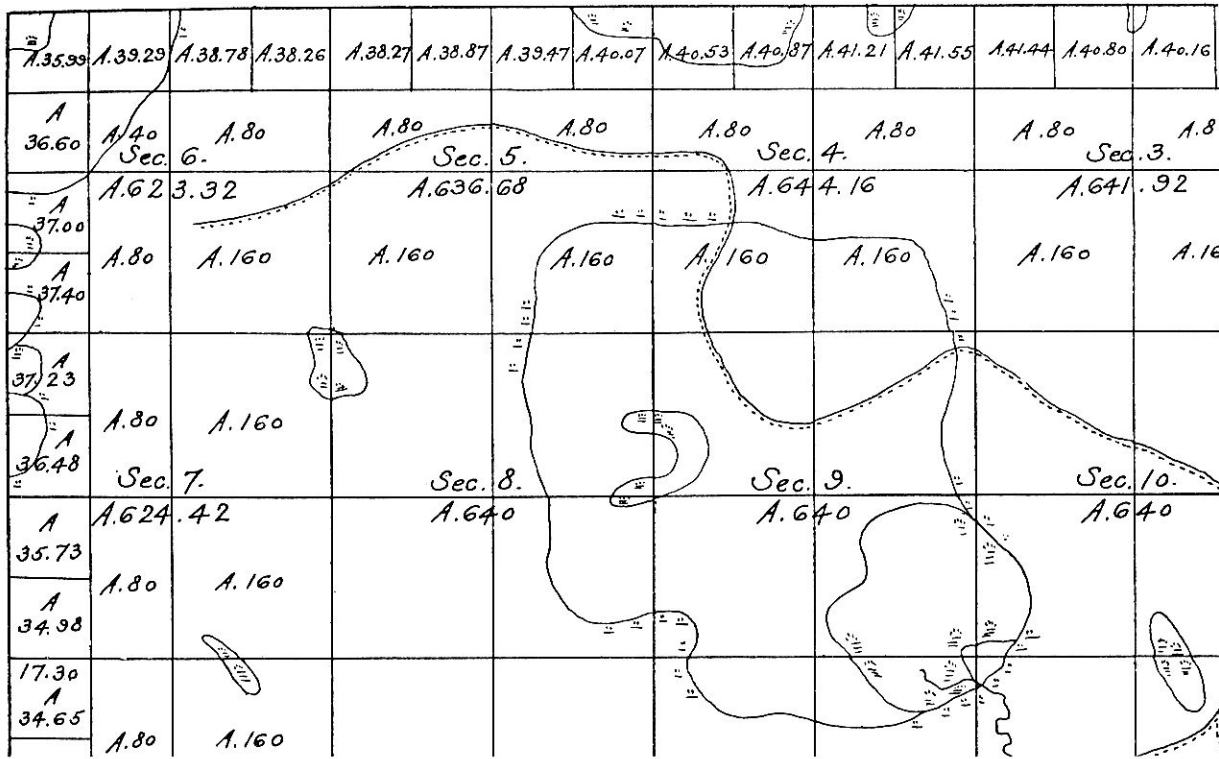 A.35.99 A.39.29 A.38.78 A.38.26 A.38.27 A.38.87 A.39.47 A.40.07 A.40.53 A.40.87 A.41.21 A.41.55 A.41.44 A.40.80 A.40.16
A
36.60 A.40 A.80 A.80 A.80 A.80 A.80 A.80 A.8
Sec. 6. Sec. 5. Sec. 4. Sec. 3.
A.623.32 A.636.68 A.644.16 A.641.92
A
37.00
A.80 A.160 A.160 A.160 A.160 A.160 A.160 A.16
A
37.40
A
37.23
A.80 A.160
A
36.48
Sec. 7. Sec. 8. Sec. 9. Sec. 10.
A.624.42 A.640 A.640 A.640
A
35.73
A.80 A.160
A
34.98
17.30
A
34.65
A.80 A.160